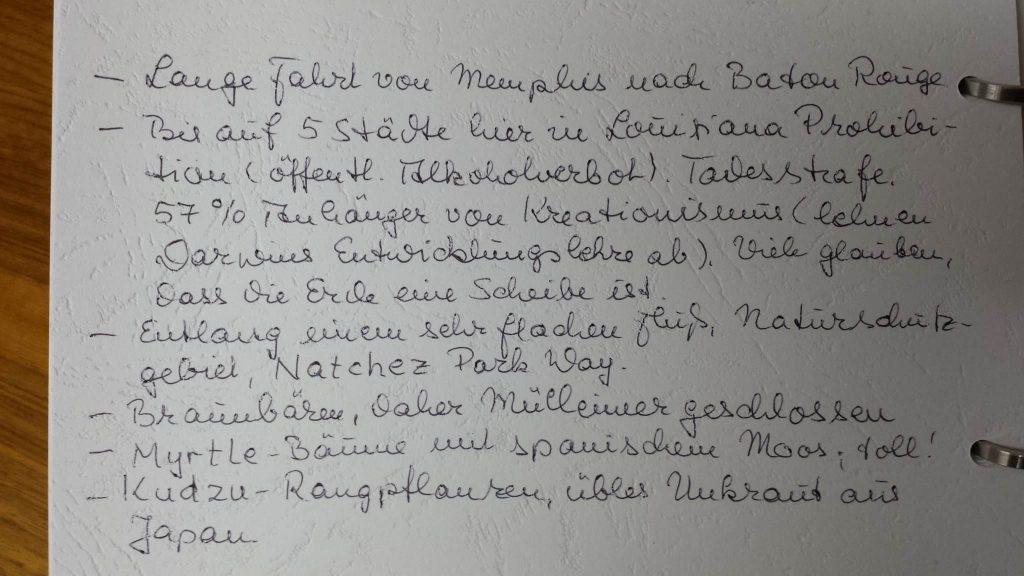 – Lange Fahrt von Memphis nach Baton Rouge
– Bis auf 5 Städte hier in Louisiana Prohibi-
tion (öffentl. Alkoholverbot). Todesstrafe.
57% Anhänger von Kreationismus (lehnen
Darwins Entwicklungslehre ab). Viele glauben,
dass die Erde eine Scheibe ist.
– Entlang einem sehr flachen Fluß, Naturschutz-
gebiet, Natchez Park Way.
– Braunbären, daher Mülleimer geschlossen
– Myrtle-Bäume mit spanischem Moos, toll!
– Kudzu-Rangpflanzen, übles Unkraut aus
Japan.